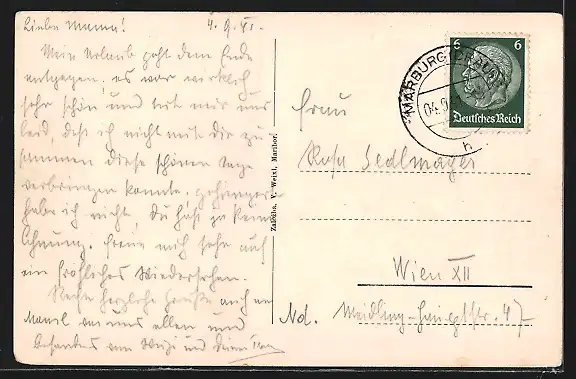 Liebe Mama! 4.9.41.
Mein Urlaub geht dem Ende
entgegen, es war wirklich
sehr schön, und tut mir nur
leid, daß ich nicht mit dir zu-
sammen diese schönen Tage
verbringen konnte.
habe ich nicht, Du hast ja keine
Ahnung. Freue mich sehr auf
ein fröhliches Wiedersehen.
Recht herzliche Grüße auch an
von uns allen und
besonders von und
Zaležba, V. Weixl, Maribor.
MARBURG (DRAU)
04.9.
h
6 6
Deutsches Reich
Frau
Rosa Sedlmayer
Wien XII
Nd. Meidling-Hauptstr. 47